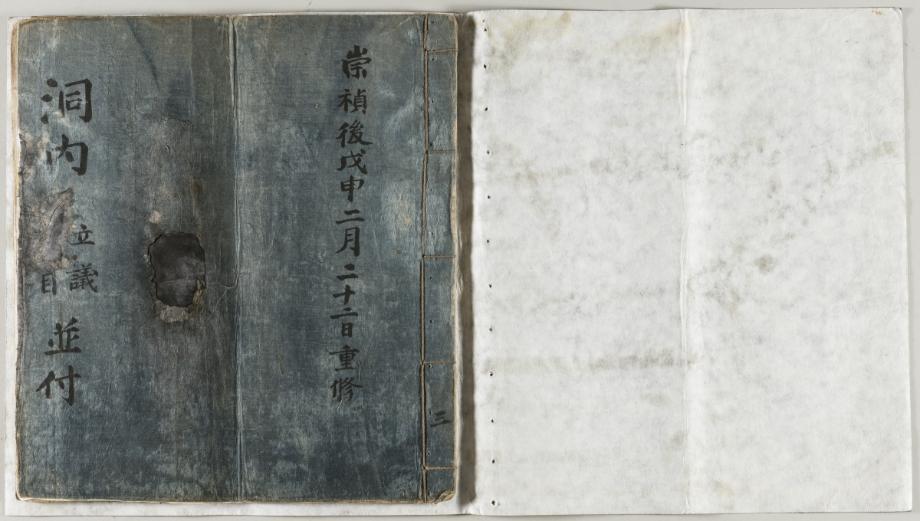 崇禎後戊申二月二十二日重修
三
洞內
立議
目
並付